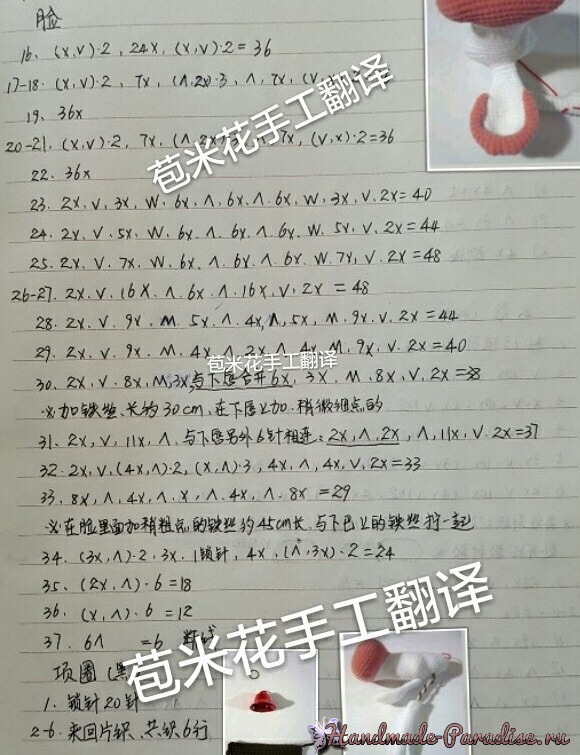 脸
16. (x,v)·2, 24x, (x,v)·2=36
17-18. (x,v)·2, 7x, (∧,2x)·3, ∧, 7x, (v,
19. 36x
20-21. (x,v)·2, 7x, 7x, (v,x)·2=36
22. 36x
苞米花手工翻译
23. 2x, v, 3x, w, 6x, ∧, 6x, ∧, 6x, w, 3x, v, 2x=40
24. 2x, v, 5x, w, 6x, ∧, 6x, ∧, 6x, w, 5x, v, 2x=44
25. 2x, v, 7x, w, 6x, ∧, 6x, ∧, 6x, w, 7x, v, 2x=48
26-27. 2x, v, 16x, ∧, 6x, ∧, 16x, v, 2x =48
28. 2x, v, 9x, M, 5x, ∧, 4x, ∧, 5x, M, 9x, v, 2x=44
29. 2x, v, 9x, M, 4x, ∧, 2x, ∧, 4x, M, 9x, v, 2x=40
苞米花手工翻译
30. 2x, v, 8x, M, 3x, 与下唇合并6x, 3x, M, 8x, v, 2x=38
※加铁丝、长约30cm,在下唇上加、稍微细点的
31. 2x, v, 11x, ∧, 与下唇另外6针相连:2x, ∧, 2x, ∧, 11x, v, 2x=37
32. 2x, v, (4x,∧)·2, (x,∧)·3, 4x, ∧, 4x, v, 2x=33
33. 8x, ∧, 4x, ∧, x, ∧, 4x, ∧, 8x =29
※在脸里面加稍粗点的铁丝约45cm长、与下巴上的铁丝拧一起
34. (3x,∧)·2, 3x, 1锁针, 4x, (∧,3x)·2=24
35. (2x,∧)·6=18
36. (x,∧)·6=12
37. 6∧ =6 断线
苞米花手工翻译
项圈 (黑
1. 锁针20针
2-6. 来回片织、共织6行
Handmade-Paradise.ru